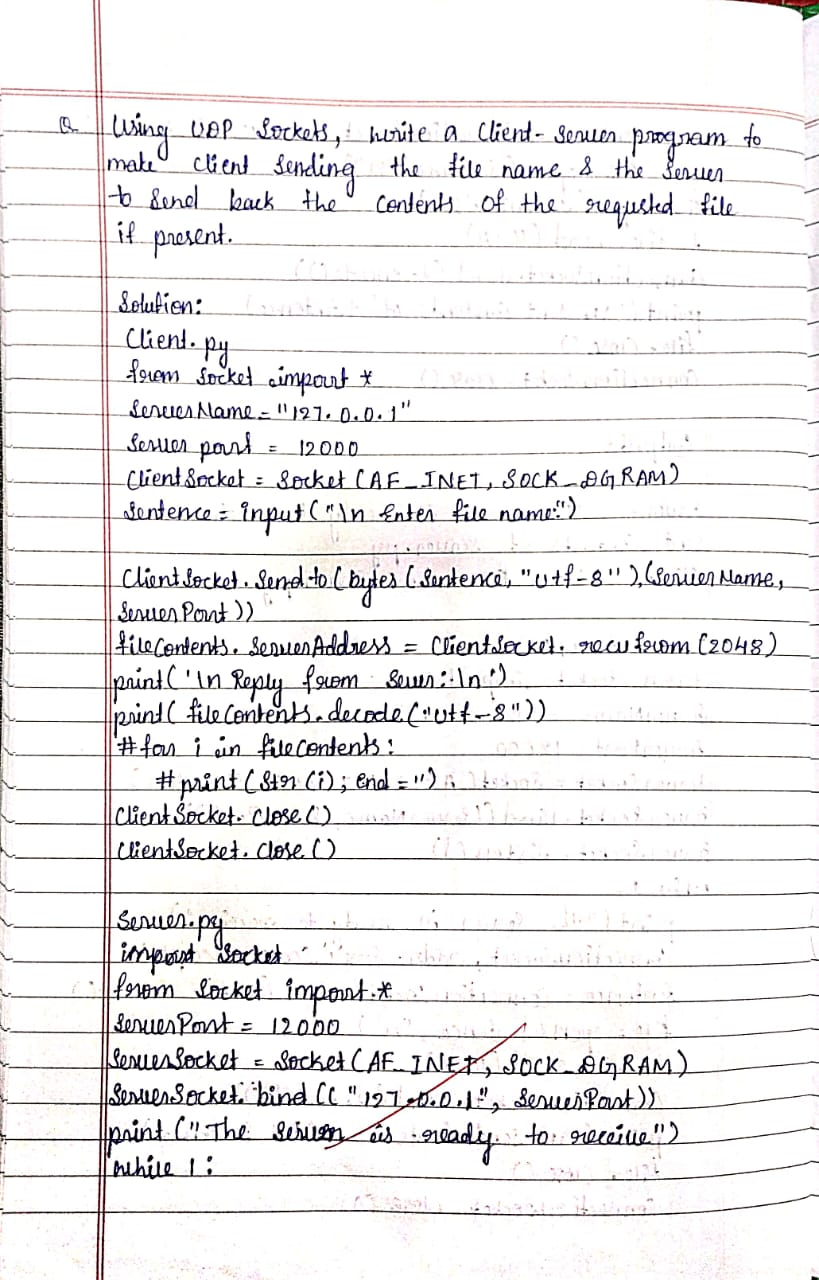 Q Using UDP Sockets, write a Client-Server program to
make client sending the file name & the server
to send back the contents of the requsted file
if present.
Solution:
Client.py
from socket import *
ServerName = "127.0.0.1"
Server port = 12000
ClientSocket = Socket (AF_INET, SOCK_DGRAM)
Sentence = input ("\n Enter file name:")
ClientSocket.Send to (bytes (Sentence, "utf-8"), (ServerName,
ServerPort))
fileContents. ServerAddress = ClientSocket. recv from (2048)
print ('\n Reply from Sever:\n')
print ( fileContents.decode ("utf-8"))
# for i in filecontents:
# print (Str (i); end = '')
ClientSocket. Close ()
ClientSocket. Close ()
Server.py
import Socket
from Socket import *
ServerPort = 12000
ServerSocket = Socket (AF_INET, SOCK_DGRAM)
ServerSocket. bind (( "127.0.0.1", ServerPort))
print (" The Server is ready to receive")
while 1 :